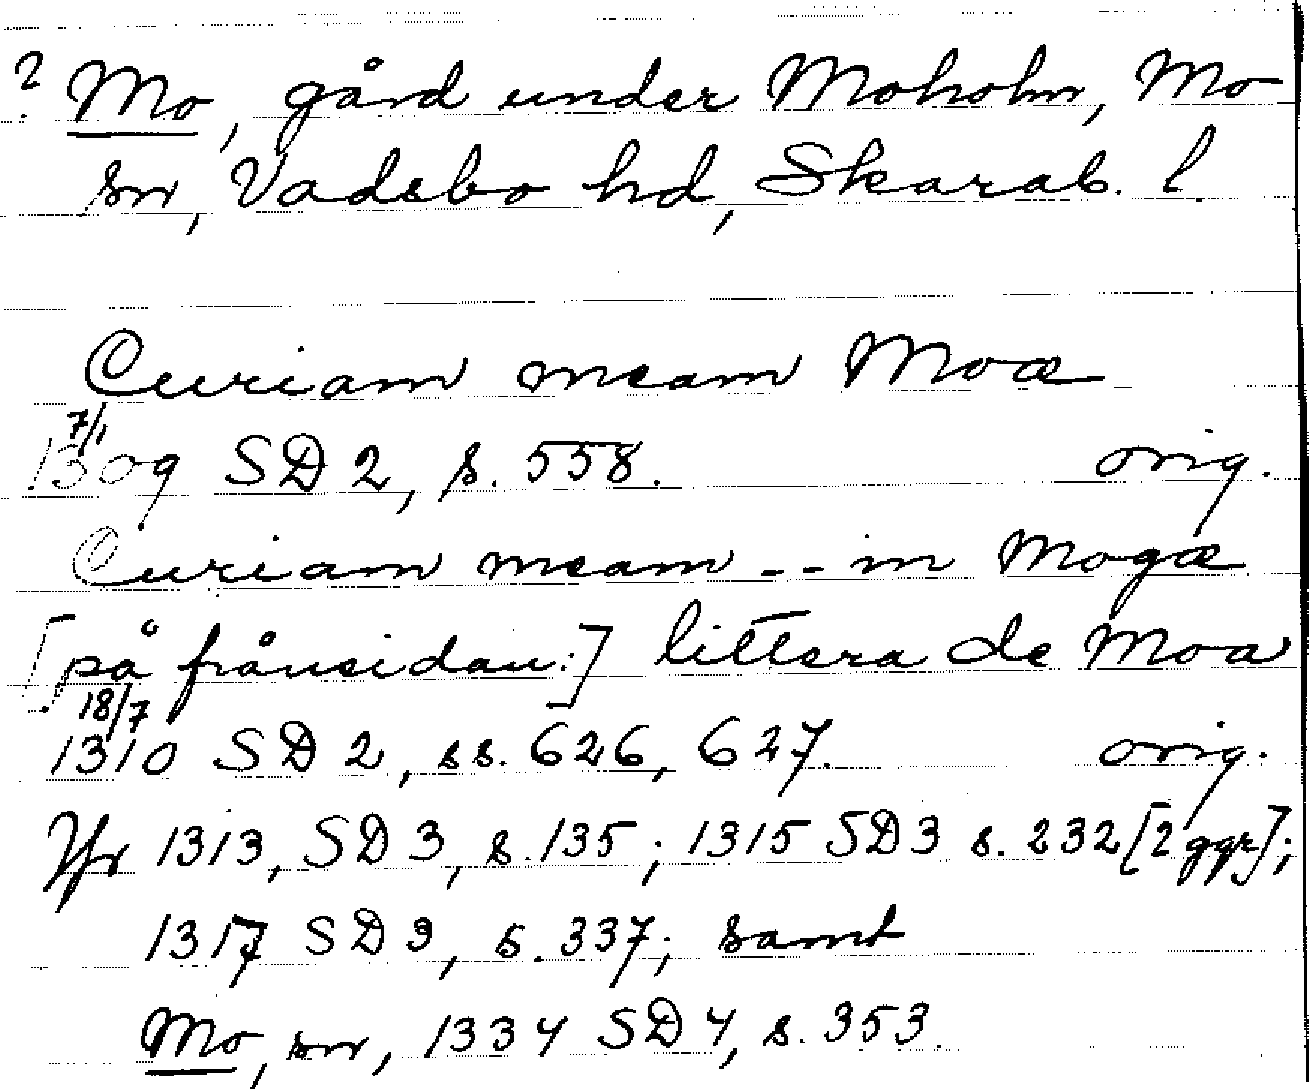 ? Mo, gård under Moholm, Mo
sn, Vadsbo hd, Skarab. l
Curiam meam Moæ
7/1
1309 SD 2, s. 558. orig.
Curiam meam -- in Mogæ
[på frånsidan:] littera de Moa
18/7
1310 SD 2, ss. 626, 627. orig.
Jfr 1313, SD 3, s. 135; 1315 SD 3 s. 232 [2 ggr];
1317 SD 3, s. 337; samt
Mo, sn, 1334 SD 4, s. 353.